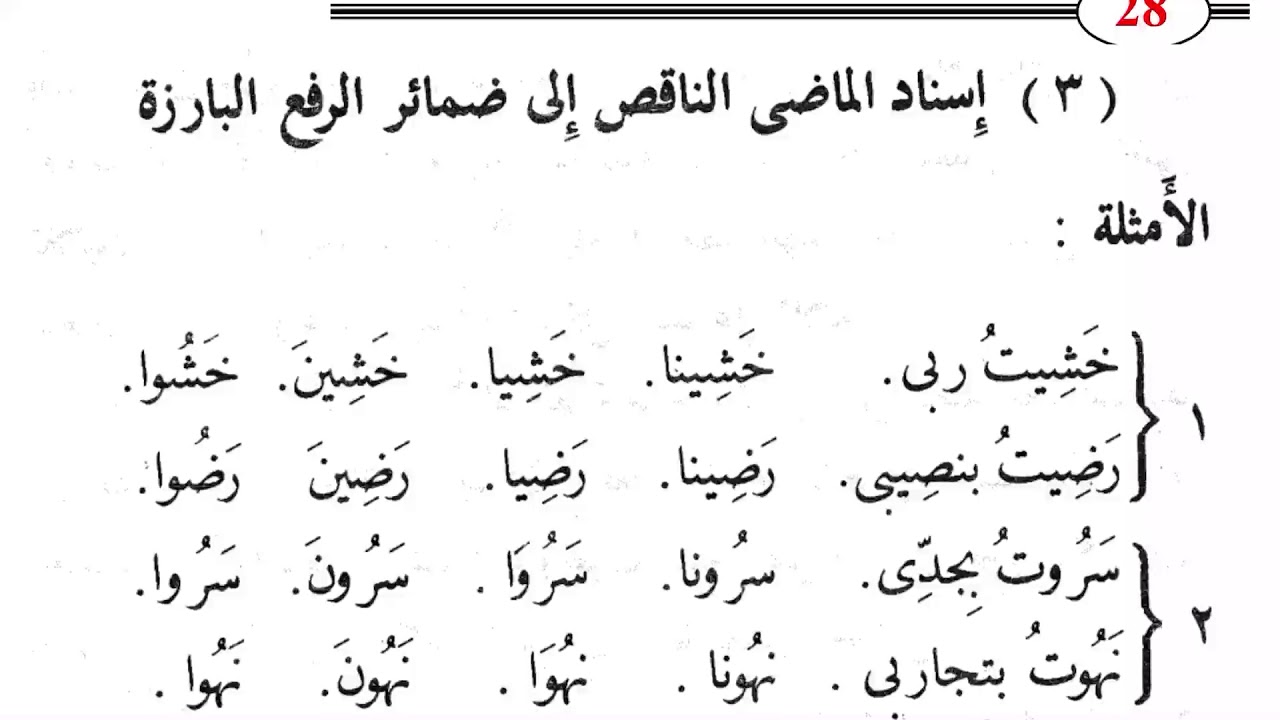 28
( ٣ ) إِسناد الماضى الناقص إِلى ضمائر الرفع البارزة
الأَمثلة :
١ خَشِيتُ ربى. خَشِينا. خَشِيا. خَشِينَ. خَشُوا.
رَضِيتُ بنصِيبى. رَضِينا. رَضِيا. رَضِينَ رَضُوا.
٢ سَرُوتُ بِجدِّى. سرُونا. سَرُوَا . سَرُونَ. سَرُوا.
نَهُوتُ بتجاربى . نهُونا . نهُوَا . نَهُونَ. نَهُوا .